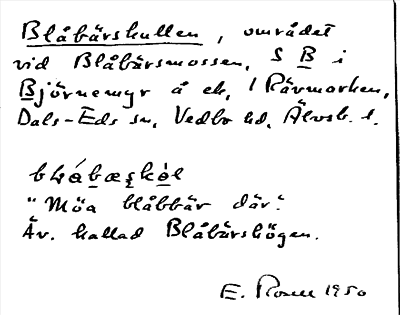 Blåbärskullen, området
vid Blåbärsmossen, S B i
Björnemyr å ek, i Rävmarken,
Dals-Eds sn, Vedbo hd, Älvsb. l.
"Möa blåbbär där."
Äv. kallad Blåbärshögen.
E. 1950